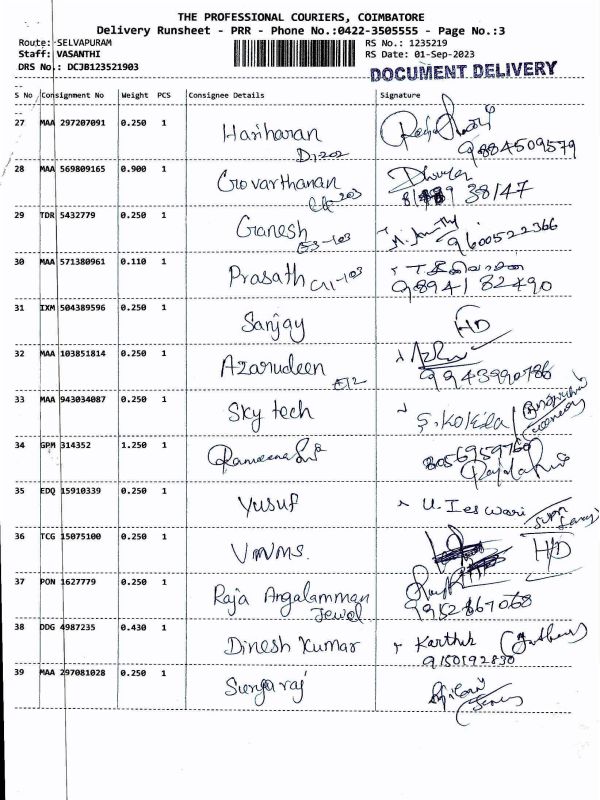 THE PROFESSIONAL COURIERS, COIMBATORE
Delivery Runsheet - PRR - Phone No.:0422-3505555 - Page No.:3
Route: SELVAPURAM RS No.: 1235219
Staff: VASANTHI RS Date: 01-Sep-2023
DRS No.: DCJB123521903 DOCUMENT DELIVERY
S No Consignment No Weight PCS Consignee Details Signature
27 MAA 297207091 0.250 1 Hariharan
D1202 9884509579
28 MAA 569809165 0.900 1 Govarthanan
203 38147
29 TDR 5432779 0.250 1 Ganesh
E3-103 9600522366
30 MAA 571380961 0.110 1 Prasath
9894182490
31 IXM 504389596 0.250 1 Sanjay HD
32 MAA 103851814 0.250 1 Azarudeen
9943990786
33 MAA 943034087 0.250 1 Sky tech S.Kokila
34 GPM 314352 1.250 1
8056959760
35 EDQ 15910339 0.250 1 Yusuf U.Ieswari
36 TCG 15075100 0.250 1 VMMS. H/D
37 PON 1627779 0.250 1 Raja Angalamman
Jewel 9952867068
38 DDG 4987235 0.430 1 Dinesh Kumar Karthik
9150192830
39 MAA 297081028 0.250 1 Suryaraj